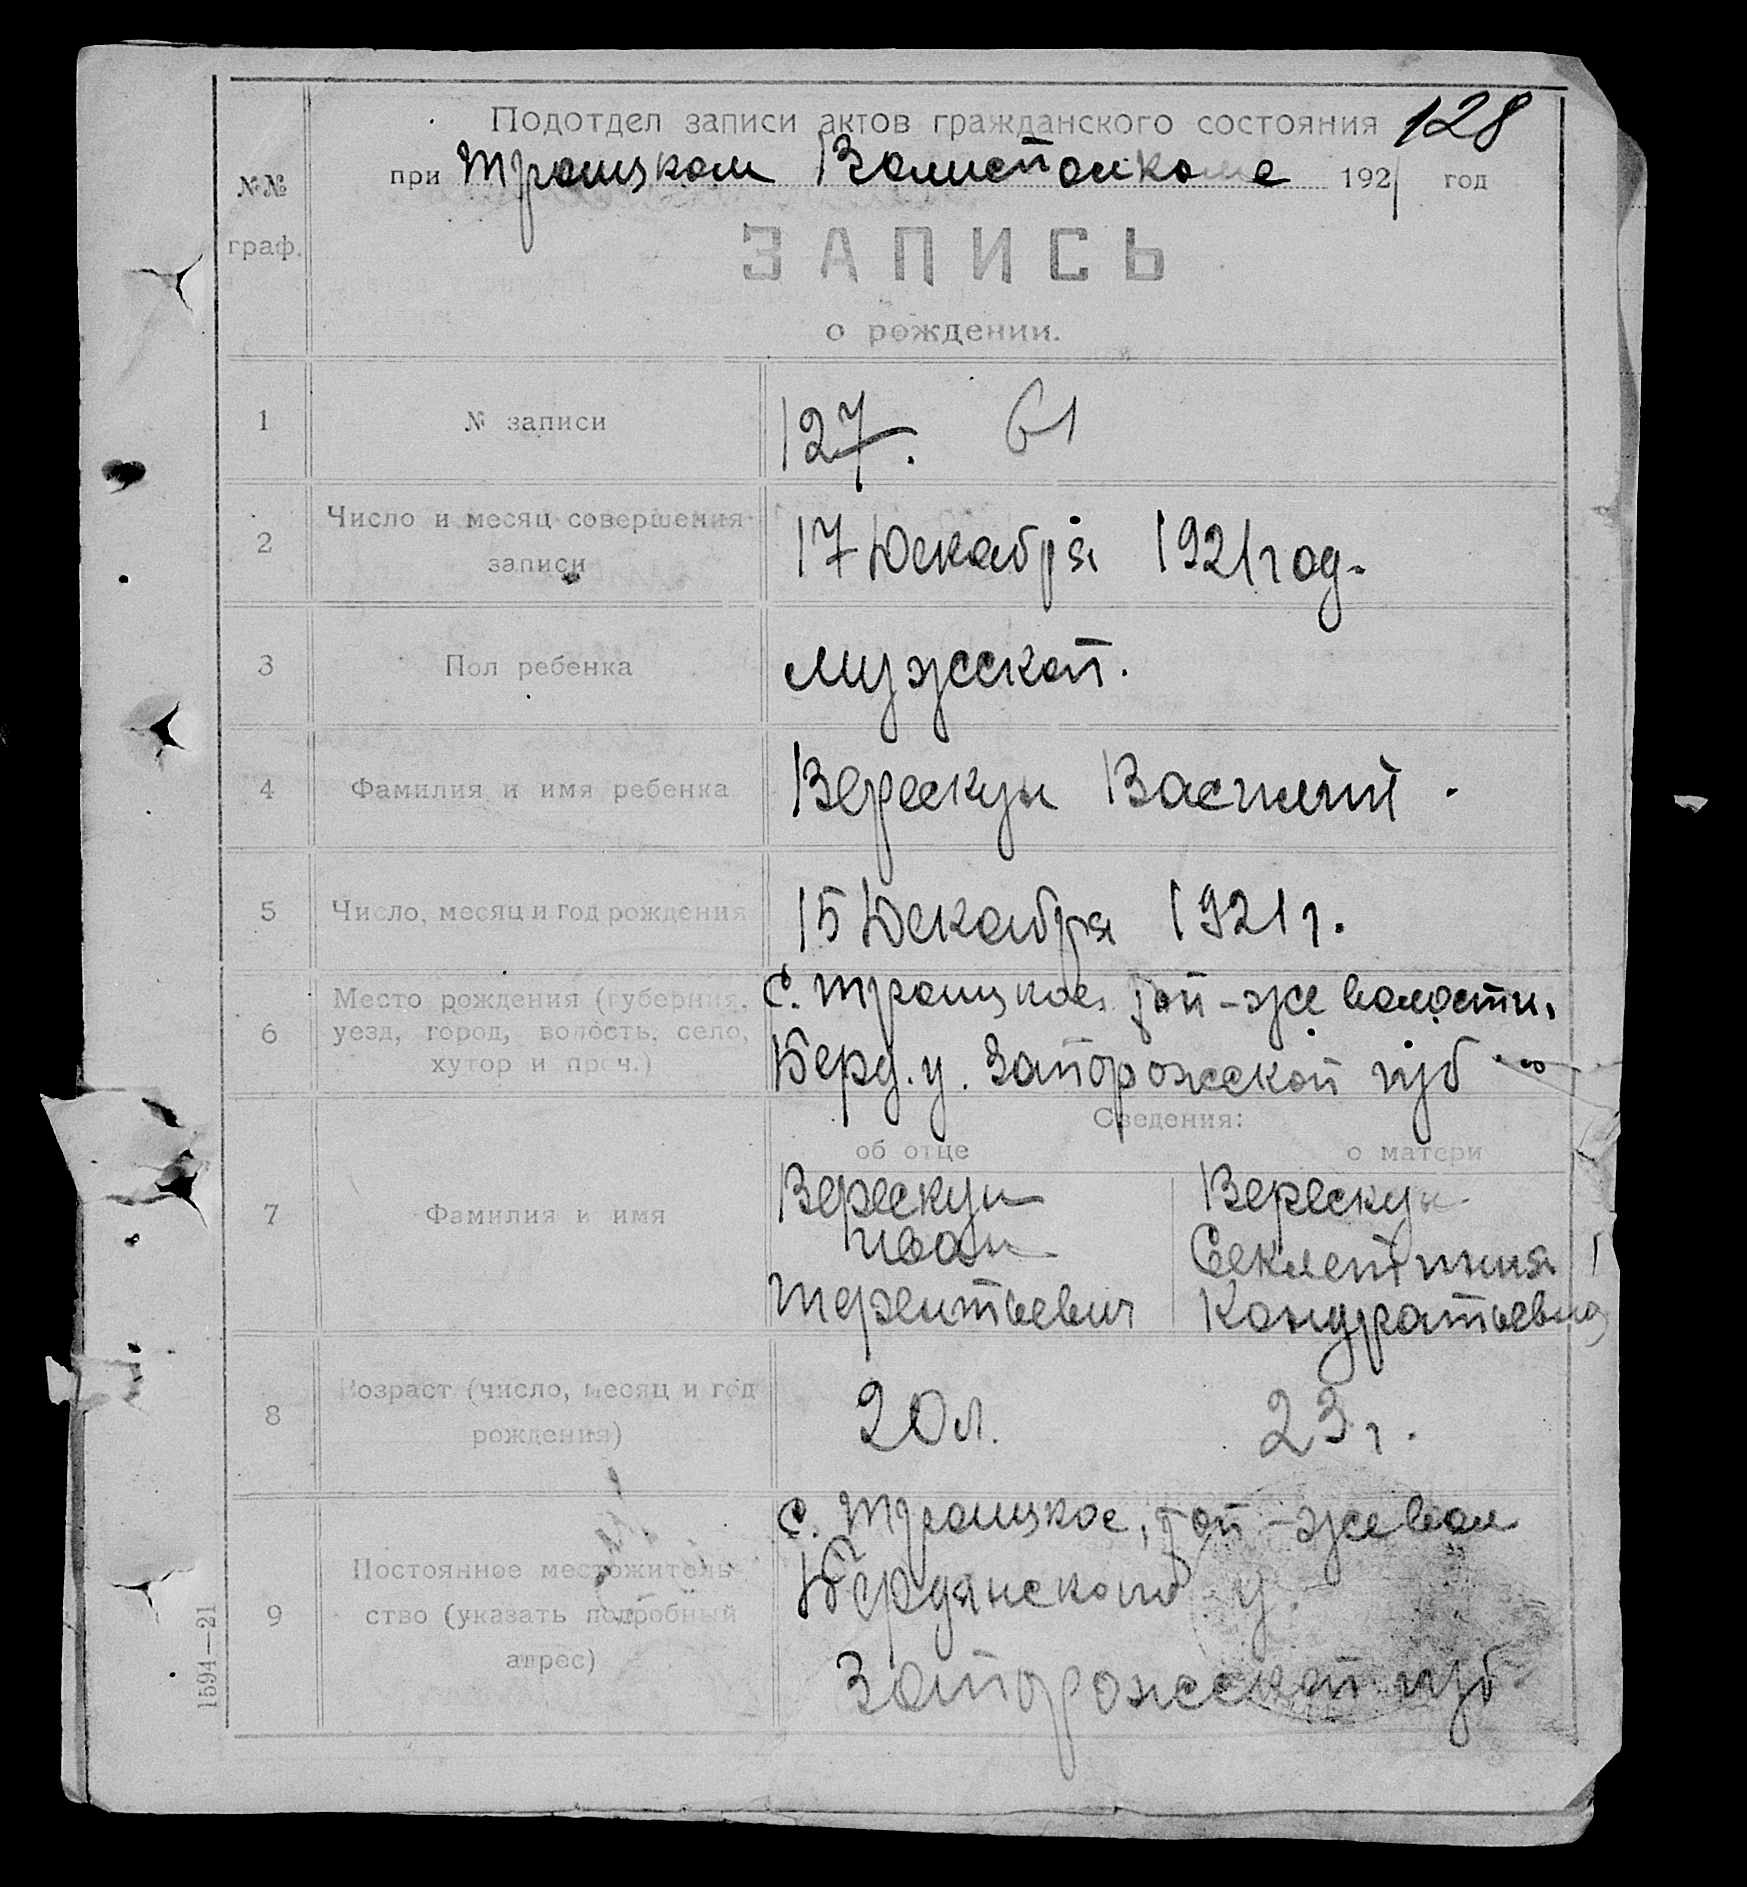 128
Подотдел записи актов гражданского состояния
при Троицком Волисполкоме 1921 год
№№ граф.
ЗАПИСЬ
о рождении.
1 № записи 127. 61
2 Число и месяц совершения записи 17 Декабря 1921 год.
3 Пол ребенка мужской.
4 Фамилия и имя ребенка Верескун Василий.
5 Число, месяц и год рождения 15 Декабря 1921 г.
6 Место рождения (губерния, уезд, город, волость, село, хутор и проч.)
с. Троицкое, той-же волости,
Берд. у. Запорожской губ
Сведения:
об отце о матери
7 Фамилия и имя
Верескун Верескун
Иван Секлетиния
Терентьевич Кондратьевна
8 Возраст (число, месяц и год рождения) 20 л. 23 г.
9 Постоянное местожительство (указать подробный адрес)
с. Троицкое, той-же вол
Бердянского у.
Запорожской губ
1594—21